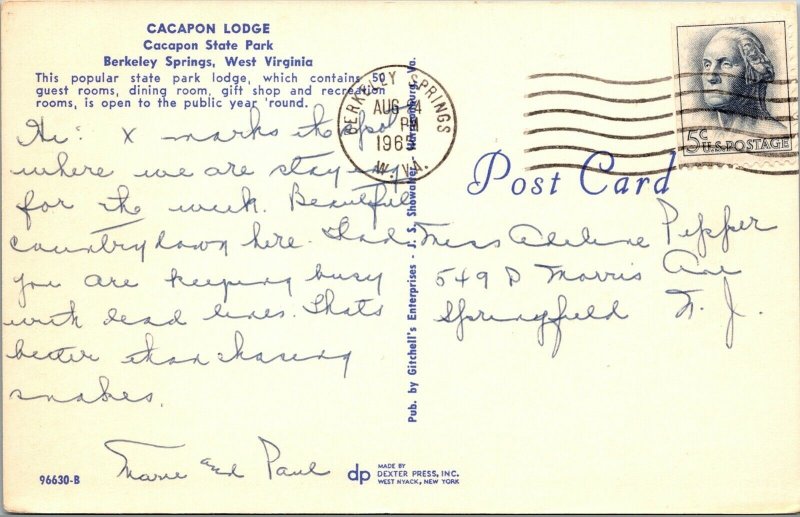 CACAPON LODGE
Cacapon State Park
Berkeley Springs, West Virginia
This popular state park lodge, which contains 50
guest rooms, dining room, gift shop and recreation
rooms, is open to the public year 'round.
Hi: X marks the spot
where we are staying
for the week. Beautiful
country down here. Glad
you are keeping busy
with dead lines. Thats
better than chasing
snakes.
Marie and Paul
96630-B
dp
MADE BY
DEXTER PRESS, INC.
WEST NYACK, NEW YORK
Pub. by Gitchell's Enterprises - J. S. Showalter, Va.
BERKELEY SPRINGS
AUG
PM
196
W. VA.
5c
U.S. POSTAGE
Post Card
Miss Adelene Pepper
549 D Morris Ave
Springfield N. J.